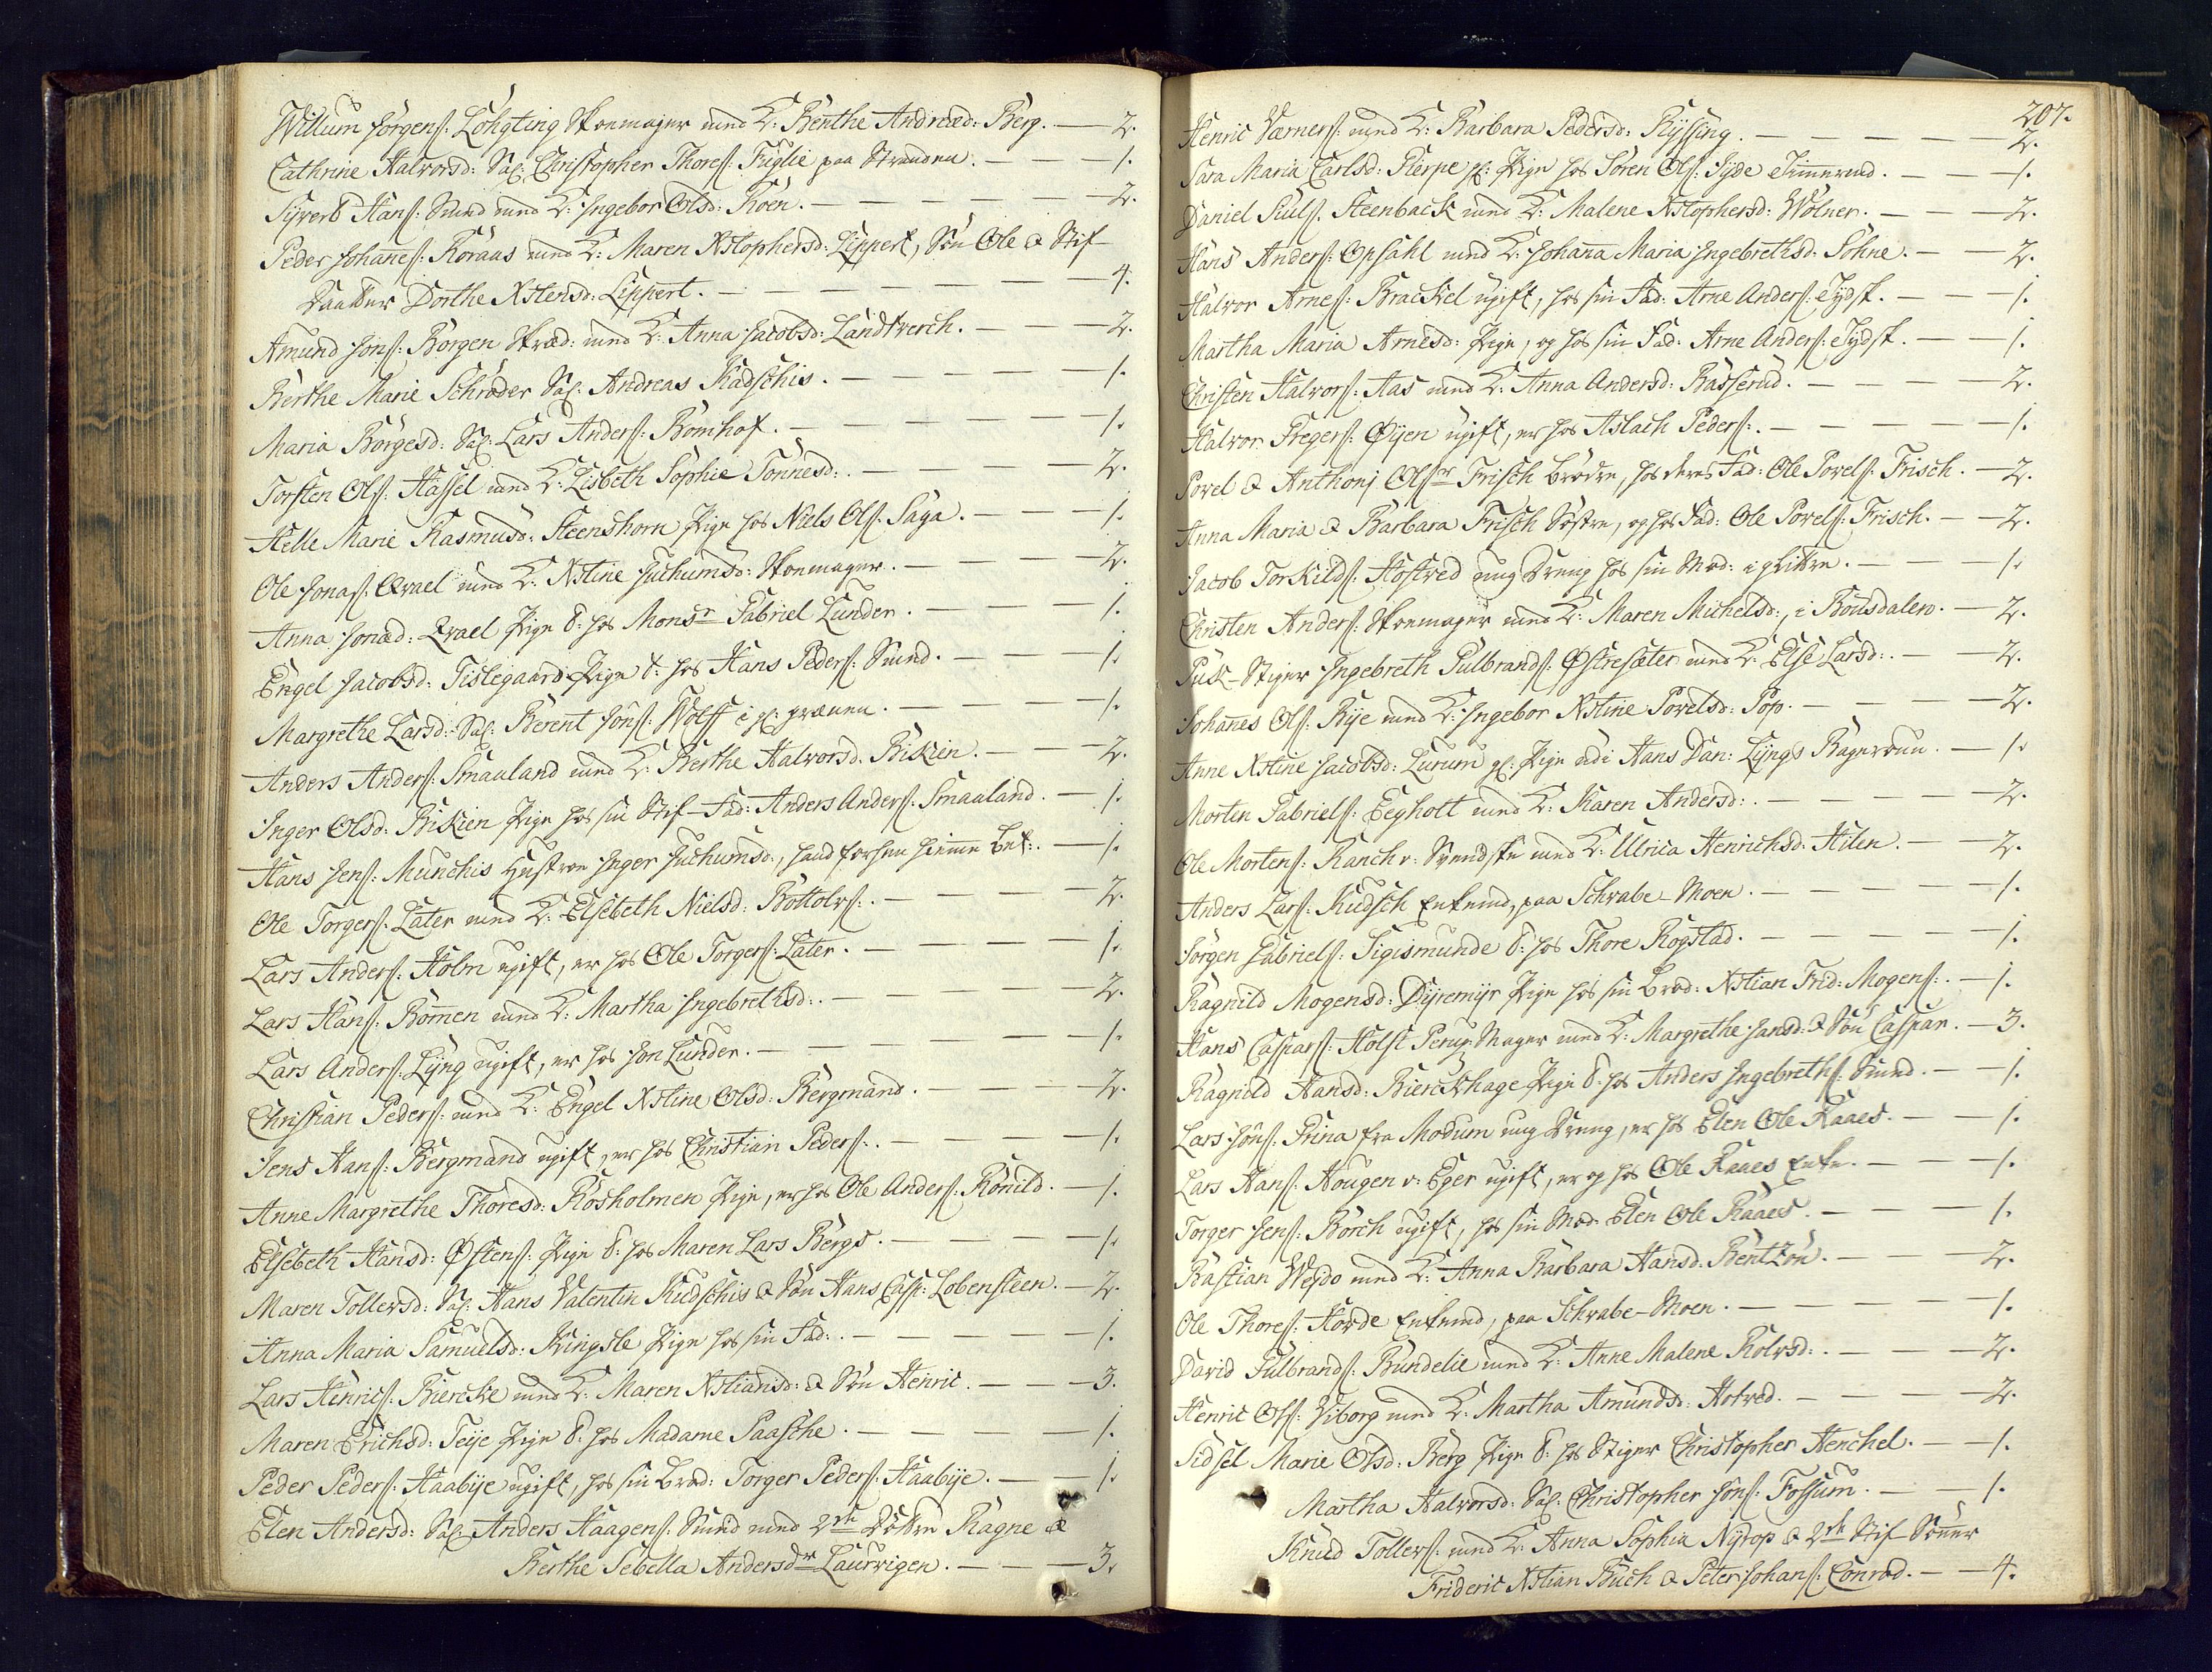 Willum Jörgenſ: Löhgting Skoemager med K: Benthe Andread: Berg. — 2.
Cathrine Halvorsd: Sal: Christopher Thoreſ: Fuglie paa Stranden. — 1.
Syvert Hanſ: Smed med K: Ingebor Olsd: Roen. — 2.
Peder Johanneſ: Röraas med K: Maren Xstophersd: Lippert, Sön Ole & Stif
Daatter Dorthe Xstensd: Lippert. — 4.
Amund Jonſ: Borgen Skræd: med K: Anna Jacobsd: Landtverch. — 2.
Berthe Marie Schröder Sal: Andreas Kudschis. — 1.
Maria Börgesd: Sal: Lars Anderſ: Bomhof. — 1.
Torsten Olſ: Hassel med K: Lisbeth Sophie Tönnesd: — 2.
Helle Marie Rasmusd: Steenshorn Pige hos Niels Olſ: Saga. — 1.
Ole Jonaſ: Qvael med K: Xstine Juchumsd: Skoemager. — 2.
Anna Jonæd: Qvael Pige t: hos Monsr Gabriel Lunder. — 1.
Engel Jacobsd: Tislegaard Pige t: hos Hans Pederſ: Smed. — 1.
Margrethe Larsd: Sal: Berent Jönſ: Wolff i gl: — 1.
Anders Anderſ: Smaaland med K: Berthe Halvorsd: Bikien. — 2.
Inger Olsd: Bikien Pige hos sin Stif-Fad: Anders Anderſ: Smaaland. — 1.
Hans Jenſ: Munchis Hustroe Inger Juchumsd:, hand forhen hiemme bet: — 1.
Ole Torgerſ: Later med K: Elsebeth Nielsd: Bottolvſ: — 2.
Lars Anderſ: Holm ugift, er hos Ole Torgerſ: Later. — 1.
Lars Hanſ: Bommen med K: Martha Ingebrethsd: — 2.
Lars Anderſ: Lyng ugift, er hos Jon Lunder. — 1.
Christian Pederſ: med K: Engel Xstine Olsd: Bergmand. — 2.
Jens Hanſ: Bergmand ugift, er hos Christian Pederſ: — 1.
Anne Margrethe Thoresd: Rosholmen Pige, er hos Ole Anderſ: Könild. — 1.
Elsebeth Hansd: Østenſ: Pige t: hos Maren Lars Bergs. — 1.
Maren Tollevsd: Sal: Hans Valentin Kudschis & Sön Hans Casp: Lobensteen. — 2.
Anna Maria Samuelsd: Kingsle Pige hos sin Fad: — 1.
Lars Henricſ: Biercke med K: Maren Xstiansd: & Sön Henric. — 3.
Maren Erichsd: Teije Pige t: hos Madame Paasche. — 1.
Peder Pederſ: Haabije ugift, hos sin Brod: Torger Pederſ: Haabije. — 1.
Elen Andersd: Sal: Anders Haagenſ: Smed med 2de Döttre Ragne &
Berthe Sebella Andersdr Laurvigen. — 3.
207.
Henric Værnerſ: med K: Barbara Pedersd: Ryssing. — 2.
Sara Maria Carlsd: Pierpe gl: Pige hos Sören Olſ: Gyde Timmermd. — 1.
Daniel Julſ: Steenback med K: Malene Xstophersd: Wölner. — 2.
Hans Anderſ: Opsahl med K: Johanna Maria Ingebrethsd: Söhne. — 2.
Halvor Arneſ: Brackel ugift, hos sin Fad: Arne Anderſ: Tydsk. — 1.
Martha Maria Arnesd: Pige, og hos sin Fad: Arne Anderſ: Tydsk. — 1.
Christen Halvorſ: Aas med K: Anna Andersd: Basserud. — 2.
Halvor Gregerſ: Øyen ugift, er hos Aslach Pederſ: — 1.
Povel & Anthonj Olſr Frisch brödre, hos deres Fad: Ole Povelſ: Frisch. — 2.
Anna Maria & Barbara Frisch Söstre, og hos Fad: Ole Povelſ: Frisch. — 2.
Jacob Torkildſ: Hostved ung Dreng hos sin Mod: i — 1.
Christen Anderſ: Skoemager med K: Maren Michelsd:, i Bousdalen. — 2.
Puk-Stiger Ingebreth Gulbrandſ: Østresæter med K: Else Larsd: — 2.
Johannes Olſ: Rije med K: Ingebor Xstine Povelsd: Pop. — 2.
Anne Xstine Jacobsd: Lurum gl: Pige udi Hans Dan: Lyngs Bagerenn. — 1.
Morten Gabrielſ: Eegholt med K: Karen Andersd: — 2.
Ole Mortenſ: Ranch v: Svendske med K: Ulrica Henrichsd: Hilen. — 2.
Anders Larſ: Kudsch Enkemd, paa Schrabe-Moen. — 1.
Jörgen Gabrielſ: Sigismunde t: hos Thore Rogstad. — 1.
Ragnild Mogensd: Dyremyr Pige hos sin Brod: Xstian Frid: Mogenſ: — 1.
Hans Casparſ: Holst Peruq: Mager med K: Margrethe Jansd: & Sön Caspar. — 3.
Ragnild Hansd: Bierckhage Pige t: hos Anders Ingebrethſ: Smed. — 1.
Lars Jönſ: Prina fra Modum ung Dreng, er hos Elen Ole Raaes. — 1.
Lars Hanſ: Hougen v: Eger ugift, er og hos Ole Raaes Enke. — 1.
Torger Jenſ: Borch ugift, hos sin Mod: Elen Ole Raaes. — 1.
Bastian Weydo med K: Anna Barbara Hansd: Bentzön. — 2.
Ole Thoreſ: Horde Enkemd, paa Schrabe-Moen. — 1.
David Gulbrandſ: Bundelie med K: Anne Malene Rolvsd: — 2.
Henric Olſ: Viborg med K: Martha Amundsd: Hotved. — 2.
Sidsel Marie Olsd: Berg Pige t: hos Stiger Christopher Henchel. — 1.
Martha Halvorsd: Sal: Christopher Jonſ: Fossum. — 1.
Knud Tollevſ: med K: Anna Sophia Nyrop & 2de Stif Sönner
Frideric Xstian Buch & Peter Johanſ: Conrad. — 4.